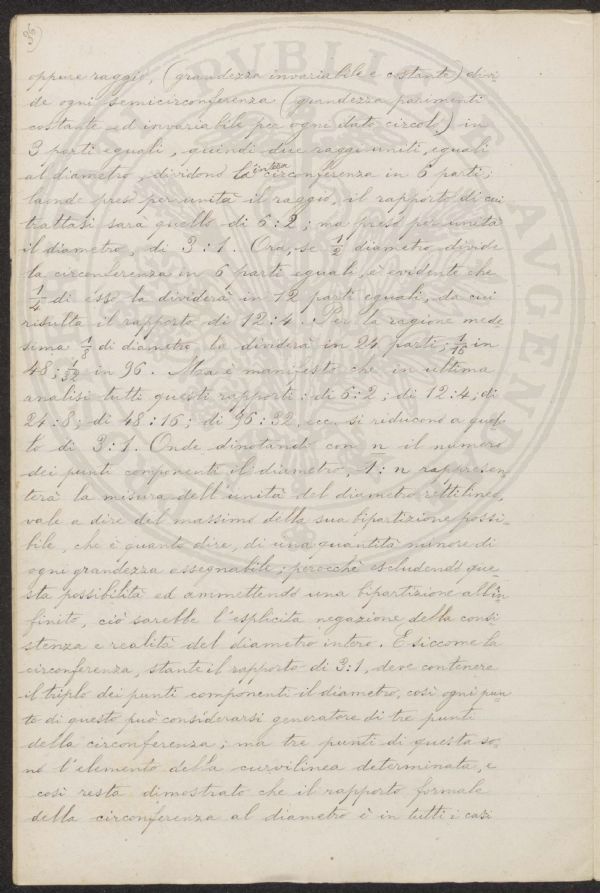 36
oppure raggio, (grandezza invariabile e costante) divi-
de ogni semicirconferenza (grandezza parimenti
costante ed invariabile per ogni dato circolo) in
3 parti eguali, quindi due raggi uniti, eguali
al diametro, dividono la intera circonferenza in 6 parti;
laonde preso per unità il raggio, il rapporto di cui
trattasi sarà quello di 6:2; ma preso per unità
il diametro, di 3:1. Ora, se 1/2 diametro divide
la circonferenza in 6 parti eguali, è evidente che
1/4 di esso la dividerà in 12 parti eguali, da cui
risulta il rapporto di 12:4. Per la ragione mede
sima 1/8 di diametro la dividerà in 24 parti; 1/16 in
48; 1/32 in 96. Ma è manifesto che in ultima
analisi tutti questi rapporti: di 6:2; di 12:4; di
24:8; di 48:16; di 96:32, ecc. si riducono a quel-
lo di 3:1. Onde dinotando con n il numero
dei punti componenti il diametro, 1:n rappresen
terà la misura dell'unità del diametro rettilineo,
vale a dire del massimo della sua bipartizione possi-
bile, che è quanto dire, di una quantità minore di
ogni grandezza assegnabile; perocchè escludendo que-
sta possibilità ed ammettendo una bipartizione all'in
finito, ciò sarebbe l'esplicita negazione della consi
stenza e realità del diametro intero. E siccome la
circonferenza, stante il rapporto di 3:1, deve contenere
il triplo dei punti componenti il diametro, così ogni pun-
to di questo può considerarsi generatore di tre punti
della circonferenza; ma tre punti di questa so-
no l'elemento della curvilinea determinata, e
così resta dimostrato che il rapporto formale
della circonferenza al diametro è in tutti i casi
PVBLICAE AVGEND